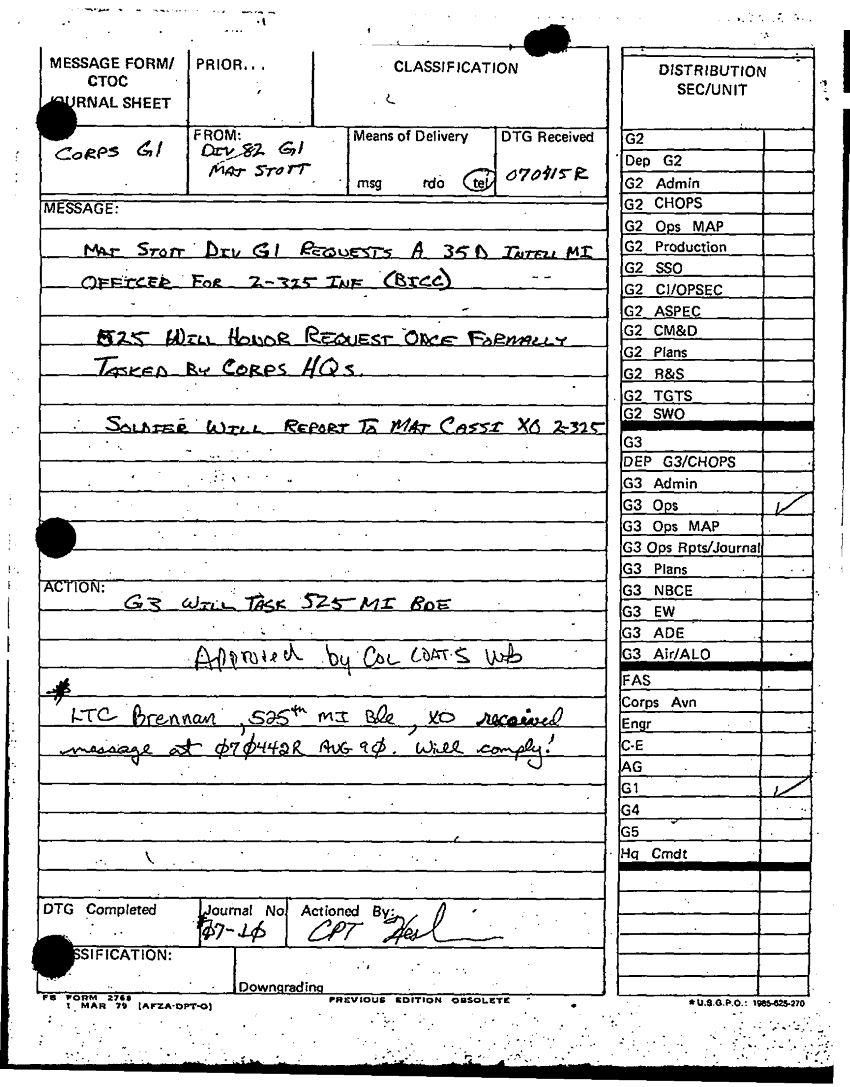 MESSAGE FORM/
CTOC
JOURNAL SHEET
PRIOR...
CLASSIFICATION
CORPS G1
FROM:
DIV 82 G1
MAJ STOTT
Means of Delivery
msg rdo tel
DTG Received
070415R
MESSAGE:
MAJ STOTT DIV G1 REQUESTS A 35D INTELL MI
OFFICER FOR 2-325 INF (BICC)
525 WILL HONOR REQUEST ONCE FORMALLY
TASKED BY CORPS HQs.
SOLDIER WILL REPORT TO MAJ CASSI XO 2-325
ACTION:
G3 WILL TASK 525 MI BDE
Approved by COL COATS
LTC Brennan, 525th MI Bde, XO received
message at 070442R AUG 90. Will comply!
DTG Completed
Journal No
07-10
Actioned By:
CPT
SSIFICATION:
Downgrading
FB FORM 2768
1 MAR 79 (AFZA-DPT-O)
PREVIOUS EDITION OBSOLETE
DISTRIBUTION
SEC/UNIT
G2
Dep G2
G2 Admin
G2 CHOPS
G2 Ops MAP
G2 Production
G2 SSO
G2 CI/OPSEC
G2 ASPEC
G2 CM&D
G2 Plans
G2 R&S
G2 TGTS
G2 SWO
G3
DEP G3/CHOPS
G3 Admin
G3 Ops
G3 Ops MAP
G3 Ops Rpts/Journal
G3 Plans
G3 NBCE
G3 EW
G3 ADE
G3 Air/ALO
FAS
Corps Avn
Engr
C-E
AG
G1
G4
G5
Hq Cmdt
*U.S.G.P.O.: 1985-625-270